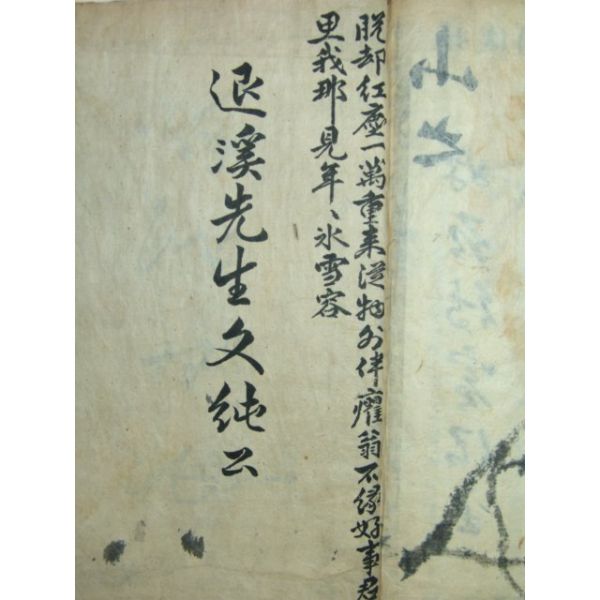 脫却紅塵一萬重来從物外伴癯翁不緣好事君
思我那見年〻氷雪容
退溪先生文純公